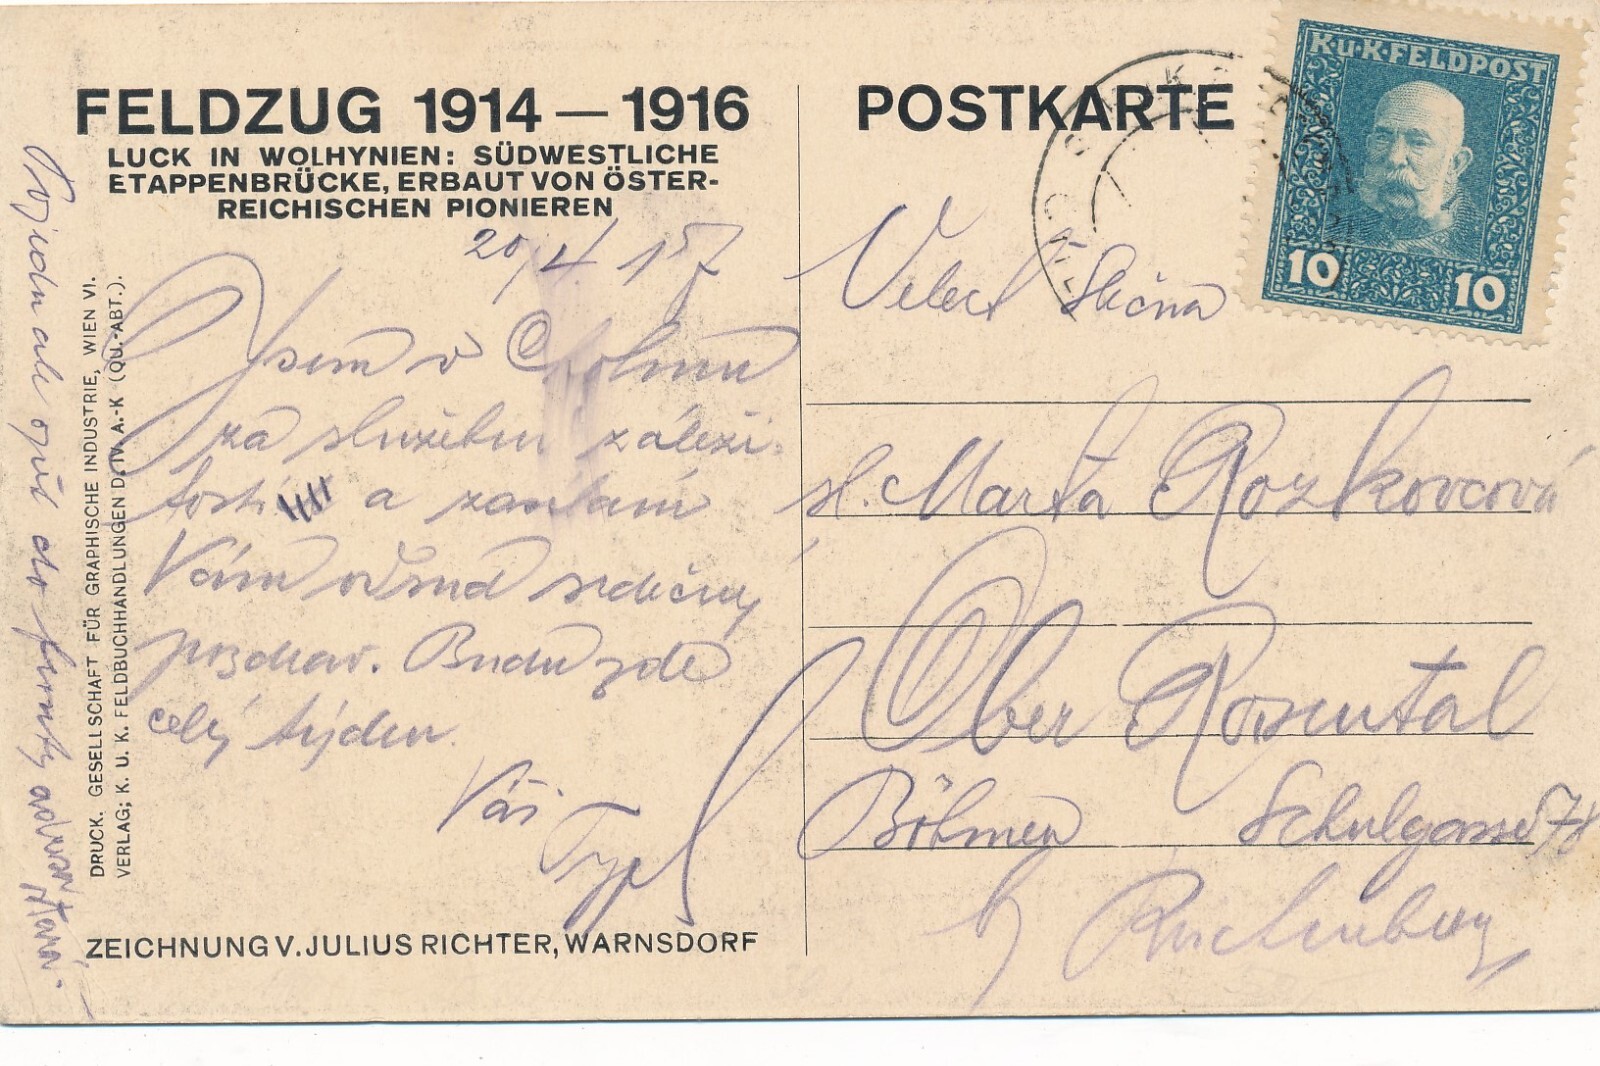 FELDZUG 1914 — 1916
LUCK IN WOLHYNIEN: SÜDWESTLICHE
ETAPPENBRÜCKE, ERBAUT VON ÖSTER-
REICHISCHEN PIONIEREN
20/4 17
Jsem v Cholmu
za služebn záleži-
tosti a zasílám
Vám srdečný
pozdrav. Budu zde
celý týden.
Váš
DRUCK. GESELLSCHAFT FÜR GRAPHISCHE INDUSTRIE, WIEN VI.
VERLAG; K. U. K. FELDBUCHHANDLUNGEN D. IV. A.-K (QU.-ABT.).
ZEICHNUNG V. JULIUS RICHTER, WARNSDORF
POSTKARTE
K.u.K. FELDPOST
10 10
Velect Slečna
sl. Marta Rozkovcová
Ober Rosental
Böhmen Schulgasse 78
b/ Reichenberg